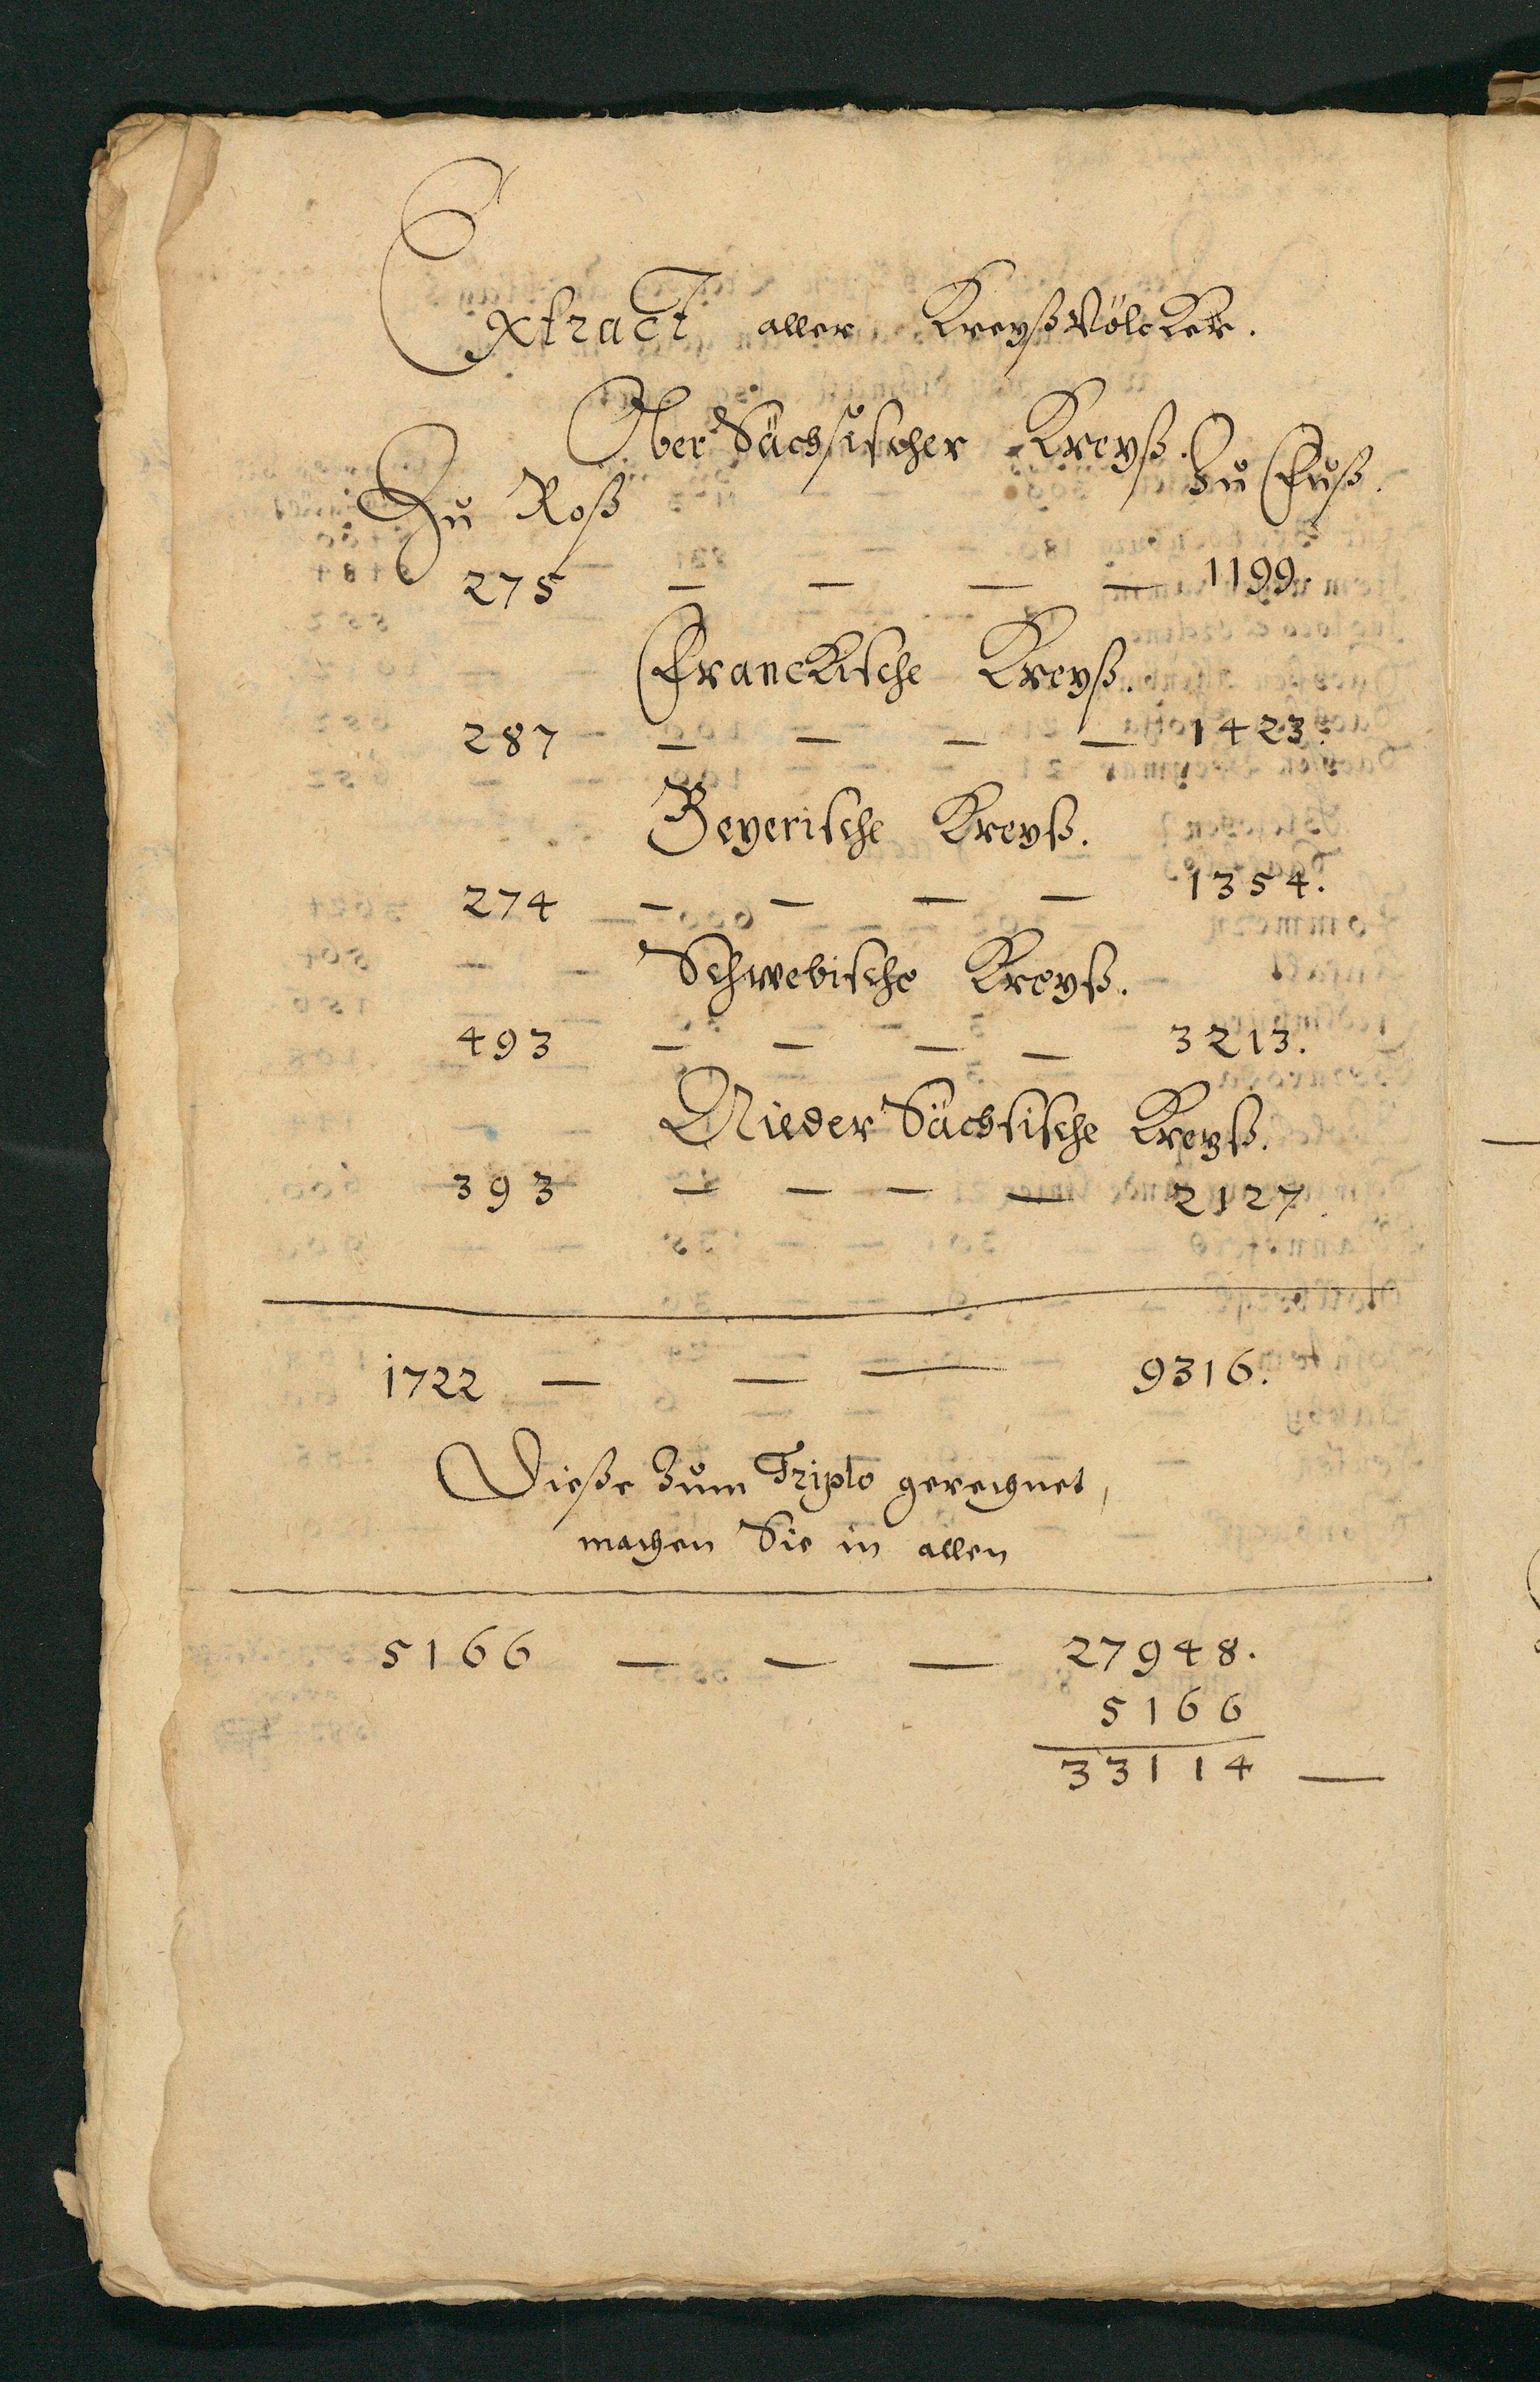 Extract aller Kreyß Völcker.
Ober Sächsischer Kreyß.
Zu Roß Zu Fuß.
275 — — — — 1199.
Franckische Kreyß.
287 — — — — 1423.
Beyerische Kreyß.
274 — — — — 1354.
Schwebische Kreyß.
493 — — — — 3213.
Nieder Sächsische Kreyß.
393 — — — — 2127.
1722 — — — 9316.
Dieße Zum Triplo gerechnet,
machen Sie in allen
5166 — — — 27948.
5166
33114 —